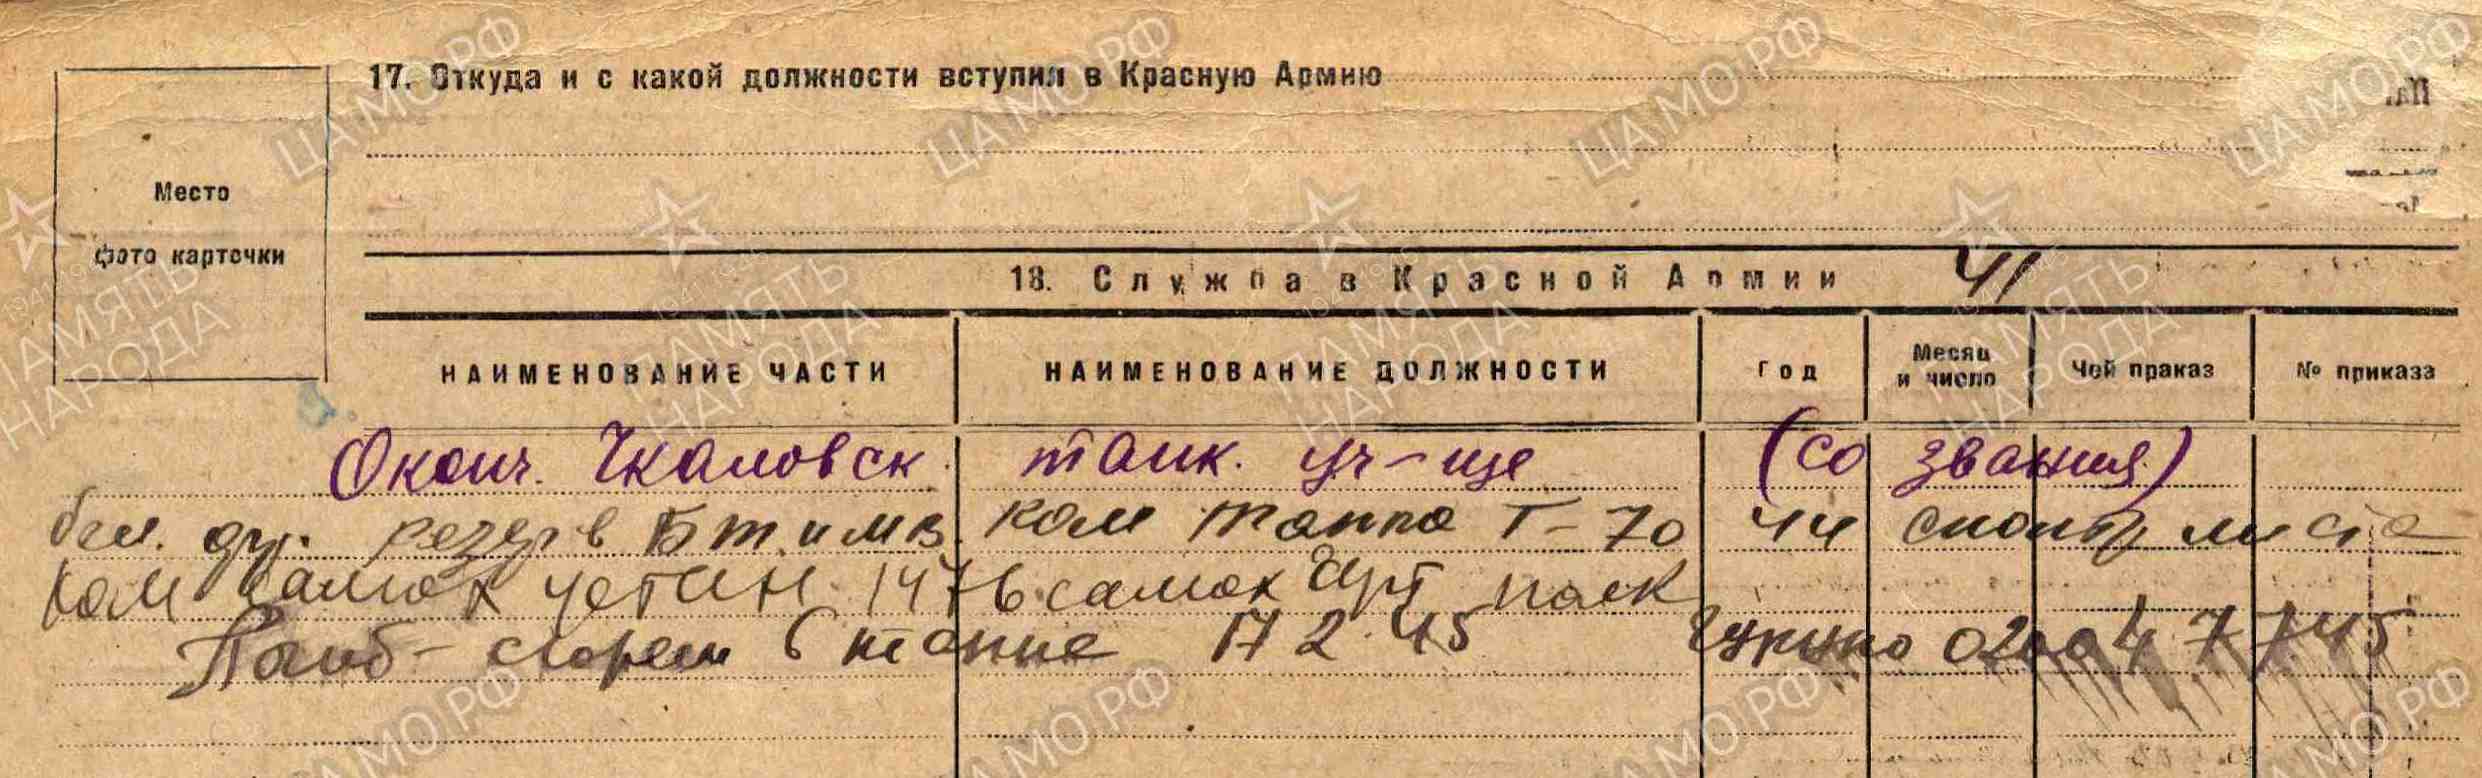 17. Откуда и с какой должности вступил в Красную Армию
Место
фото карточки
18. Служба в Красной Армии 41
НАИМЕНОВАНИЕ ЧАСТИ НАИМЕНОВАНИЕ ДОЛЖНОСТИ Год Месяц и число Чей приказ № приказа
Оконч. Чкаловск. танк. уч-ще (со звания)
резерв БТ и МВ. ком танка Т-70 44
ком самох устан. 1476 самох арт полк
Погиб - сгорел в танке 17 2 45
ЦАМО.РФ
ПАМЯТЬ НАРОДА
1941 1945